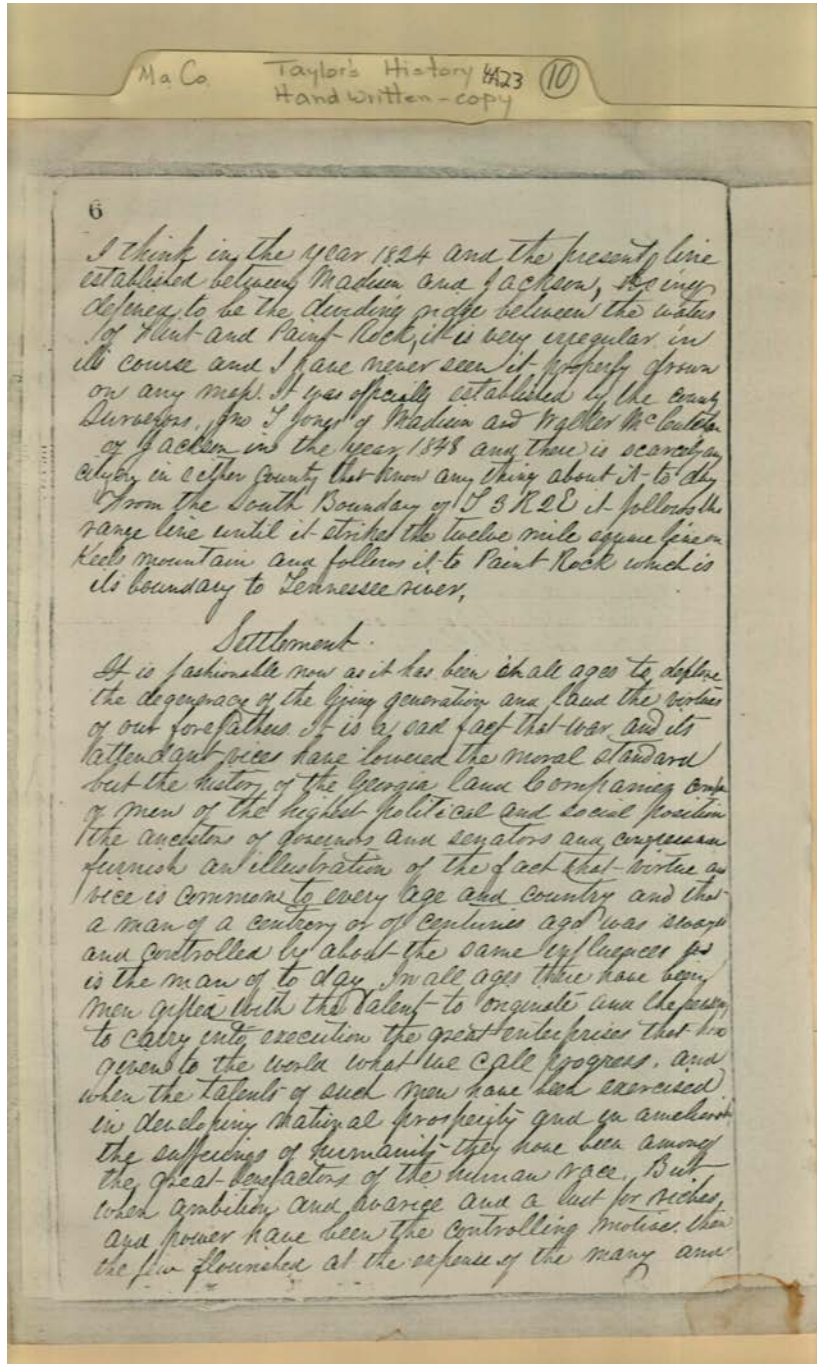 Ma Co. Taylor's History 4A23 10
Hand written - copy
6
I think in the year 1824 and the present line
established between Madison and Jackson, being
defined to be the dividing ridge between the waters
of Flint and Paint Rock, it is very irregular in
its course and I have never seen it properly drown
on any map. It was officially established by the county
Surveyors, Jno T Jones of Madison and Walker McCutchen
of Jackson in the year 1848 and there is scarcely any
in either County that know any thing about it to day
From the South Boundary of T 3 R 2 E it follows the
range line until it strikes the twelve mile square line on
Keels mountain and follows it to Paint Rock which is
its boundary to Tennessee river,
Settlement.
It is fashionable now as it has been in all ages to deplore
the degeneracy of the living generation and laud the virtues
of our forefathers. It is a sad fact that war and its
attendant vices have lowered the moral standard
but the history of the Georgia land Companies
of men of the highest political and social position
the ancestors of governors and senators and
furnish an illustration of the fact that virtue an
vice is common to every age and country and that
a man of a century or of centuries ago was
and controlled by about the same influences as
is the man of to day. In all ages there have been
men gifted with the talent to originate and the
to carry into execution the great enterprises that
given to the world what we call progress. and
when the talents of such men have been exercised
in developing national prosperity and in
the sufferings of humanity they have been among
the great benefactors of the human race. But
when ambition and avarice and a lust for riches
and power have been the controlling motive. then
the few flourished at the expense of the many and